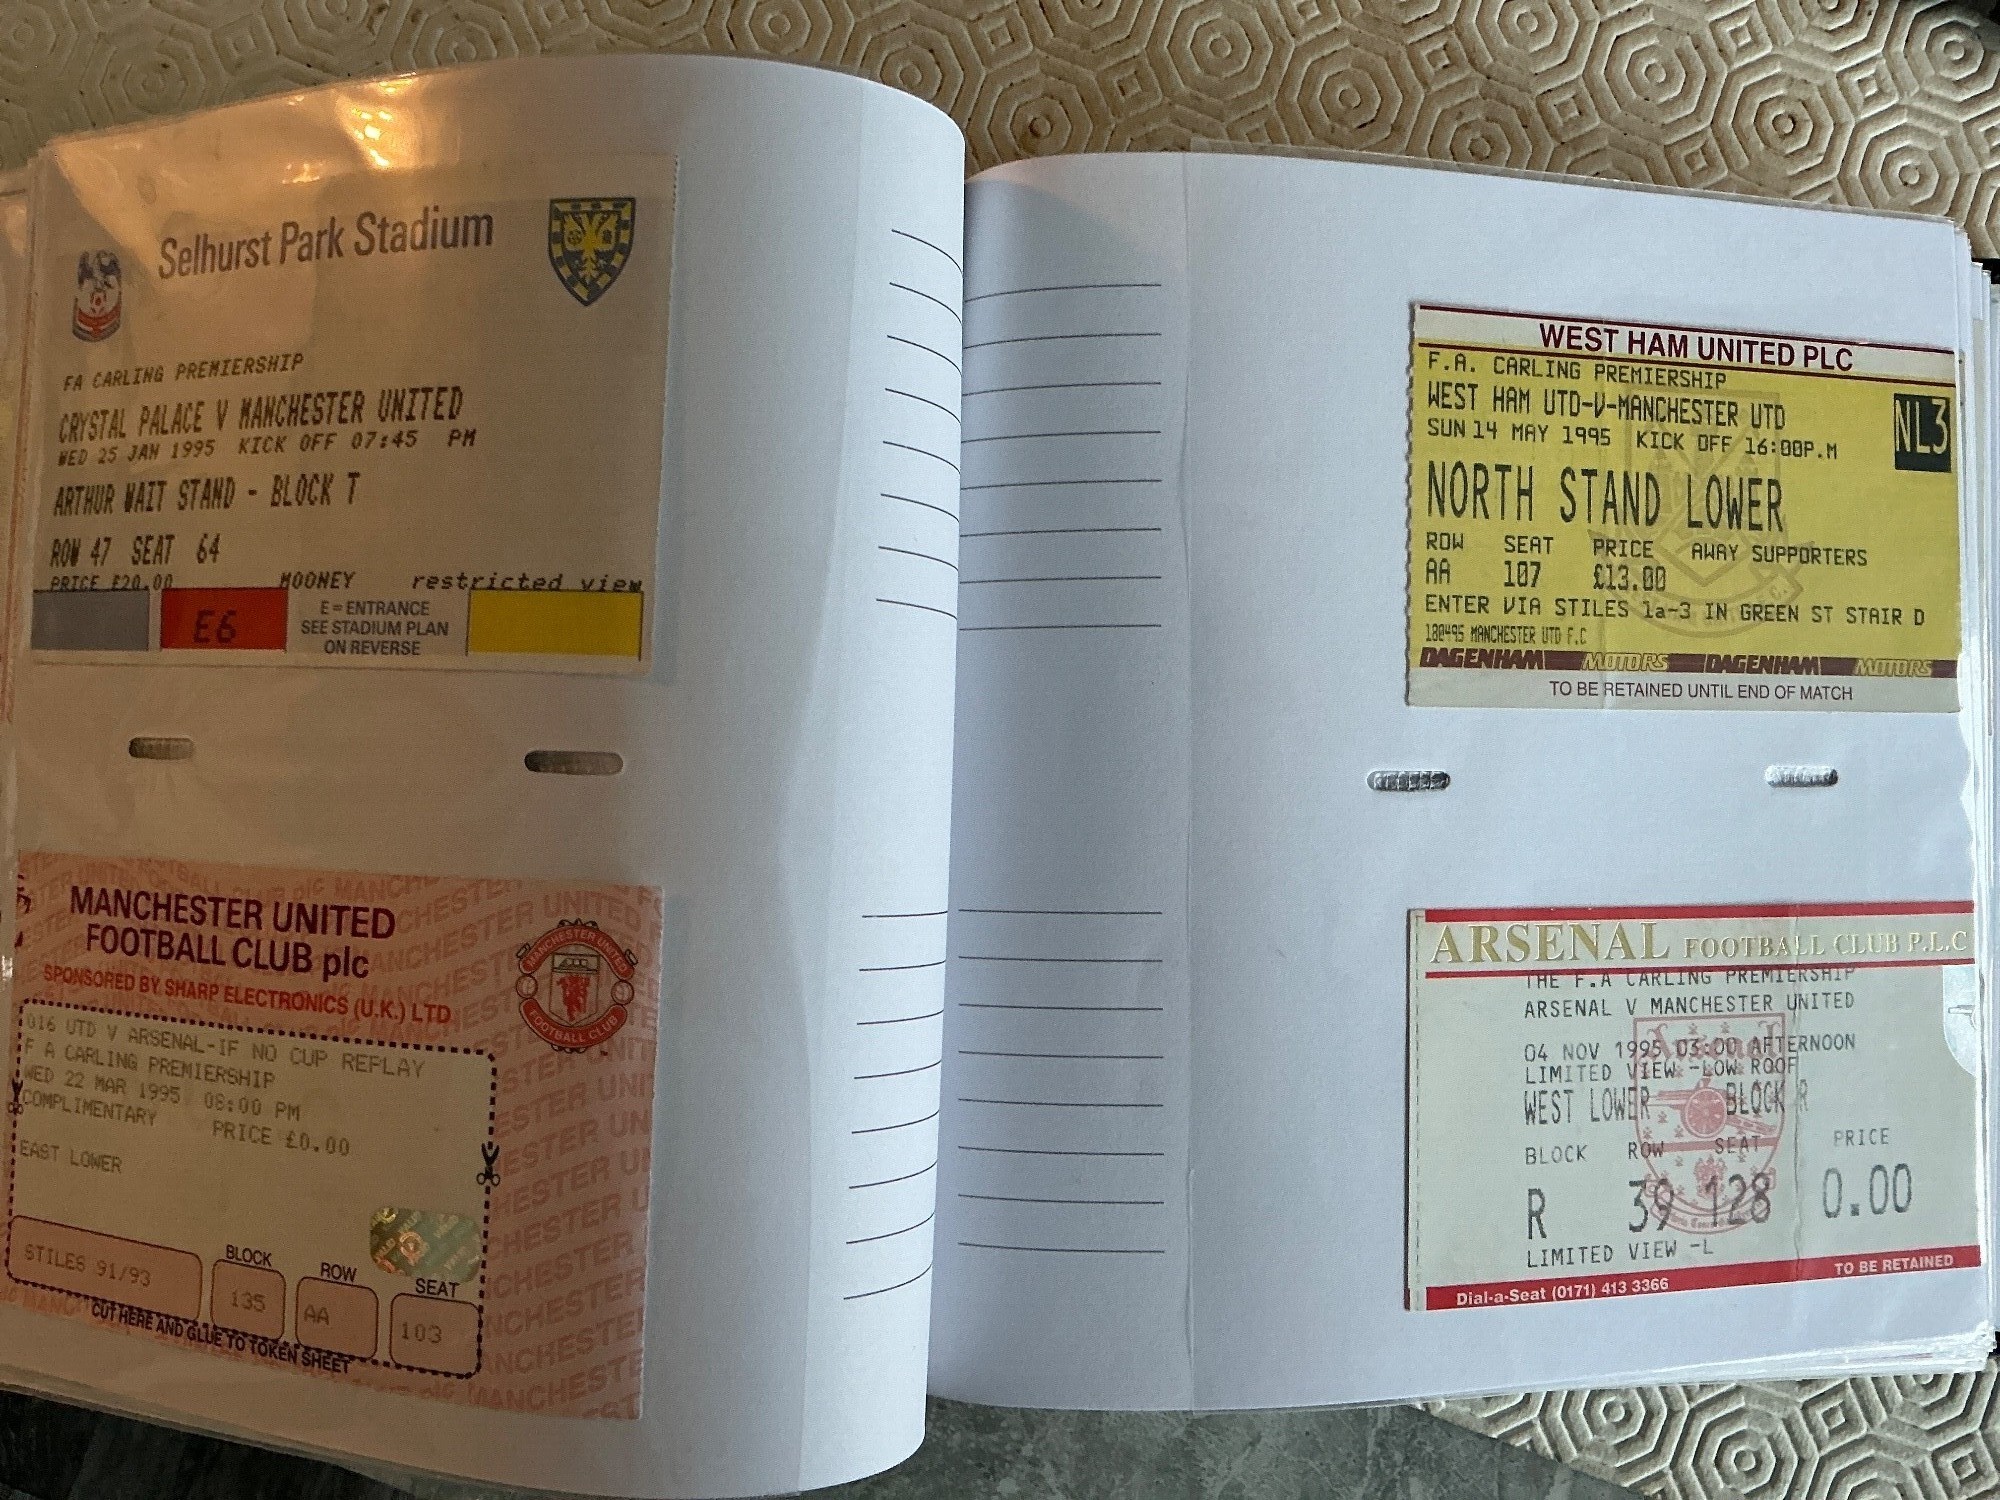 Selhurst Park Stadium
FA CARLING PREMIERSHIP
CRYSTAL PALACE V MANCHESTER UNITED
WED 25 JAN 1995 KICK OFF 07:45 PM
ARTHUR WAIT STAND - BLOCK T
ROW 47 SEAT 64
PRICE £20.00 MOONEY restricted view
E6
E = ENTRANCE
SEE STADIUM PLAN
ON REVERSE
MANCHESTER UNITED
FOOTBALL CLUB plc
SPONSORED BY SHARP ELECTRONICS (U.K.) LTD
MANCHESTER UNITED
FOOTBALL CLUB
016 UTD V ARSENAL-IF NO CUP REPLAY
F A CARLING PREMIERSHIP
WED 22 MAR 1995 08:00 PM
COMPLIMENTARY PRICE £0.00
EAST LOWER
BLOCK ROW SEAT
STILES 91/93 135 AA 103
CUT HERE AND GLUE TO TOKEN SHEET
WEST HAM UNITED PLC
F.A. CARLING PREMIERSHIP
WEST HAM UTD-V-MANCHESTER UTD
SUN 14 MAY 1995 KICK OFF 16:00P.M
NL3
NORTH STAND LOWER
ROW SEAT PRICE AWAY SUPPORTERS
AA 107 £13.00
ENTER VIA STILES 1a-3 IN GREEN ST STAIR D
180495 MANCHESTER UTD F.C
DAGENHAM MOTORS DAGENHAM MOTORS
TO BE RETAINED UNTIL END OF MATCH
ARSENAL FOOTBALL CLUB P.L.C
THE F.A CARLING PREMIERSHIP
ARSENAL V MANCHESTER UNITED
04 NOV 1995 03:00 AFTERNOON
LIMITED VIEW -LOW ROOF
WEST LOWER BLOCK R
BLOCK ROW SEAT PRICE
R 39 128 0.00
LIMITED VIEW -L
Dial-a-Seat (0171) 413 3366 TO BE RETAINED